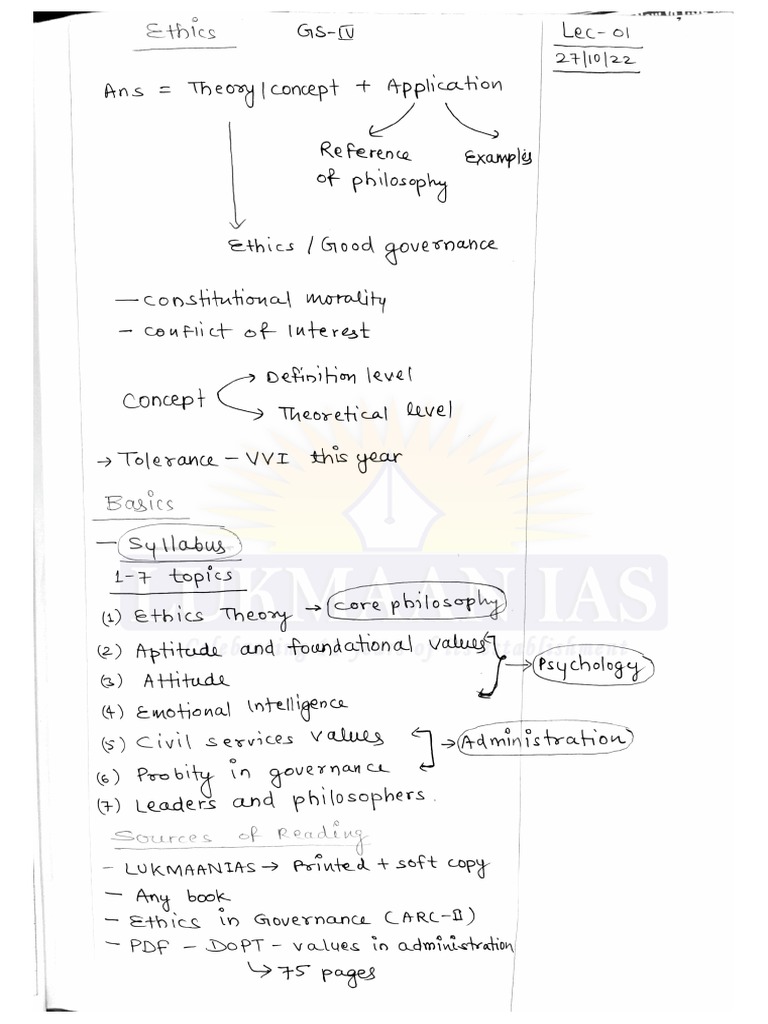 Ethics GS-IV Lec-01
27/10/22
Ans = Theory/concept + Application
Reference of philosophy
Examples
Ethics / Good governance
— constitutional morality
- conflict of Interest
Concept
→ Definition level
→ Theoretical level
→ Tolerance – VVI this year
Basics
— Syllabus
1-7 topics
(1) Ethics Theory → core philosophy
(2) Aptitude and foundational values
(3) Attitude
(4) Emotional Intelligence
→ Psychology
(5) Civil services values
(6) Probity in governance
→ Administration
(7) Leaders and philosophers.
Sources of Reading
- LUKMAANIAS → Printed + soft copy
— Any book
- Ethics in Governance (ARC-II)
- PDF – DOPT – values in administration
↳ 75 pages
LUKMAAN IAS